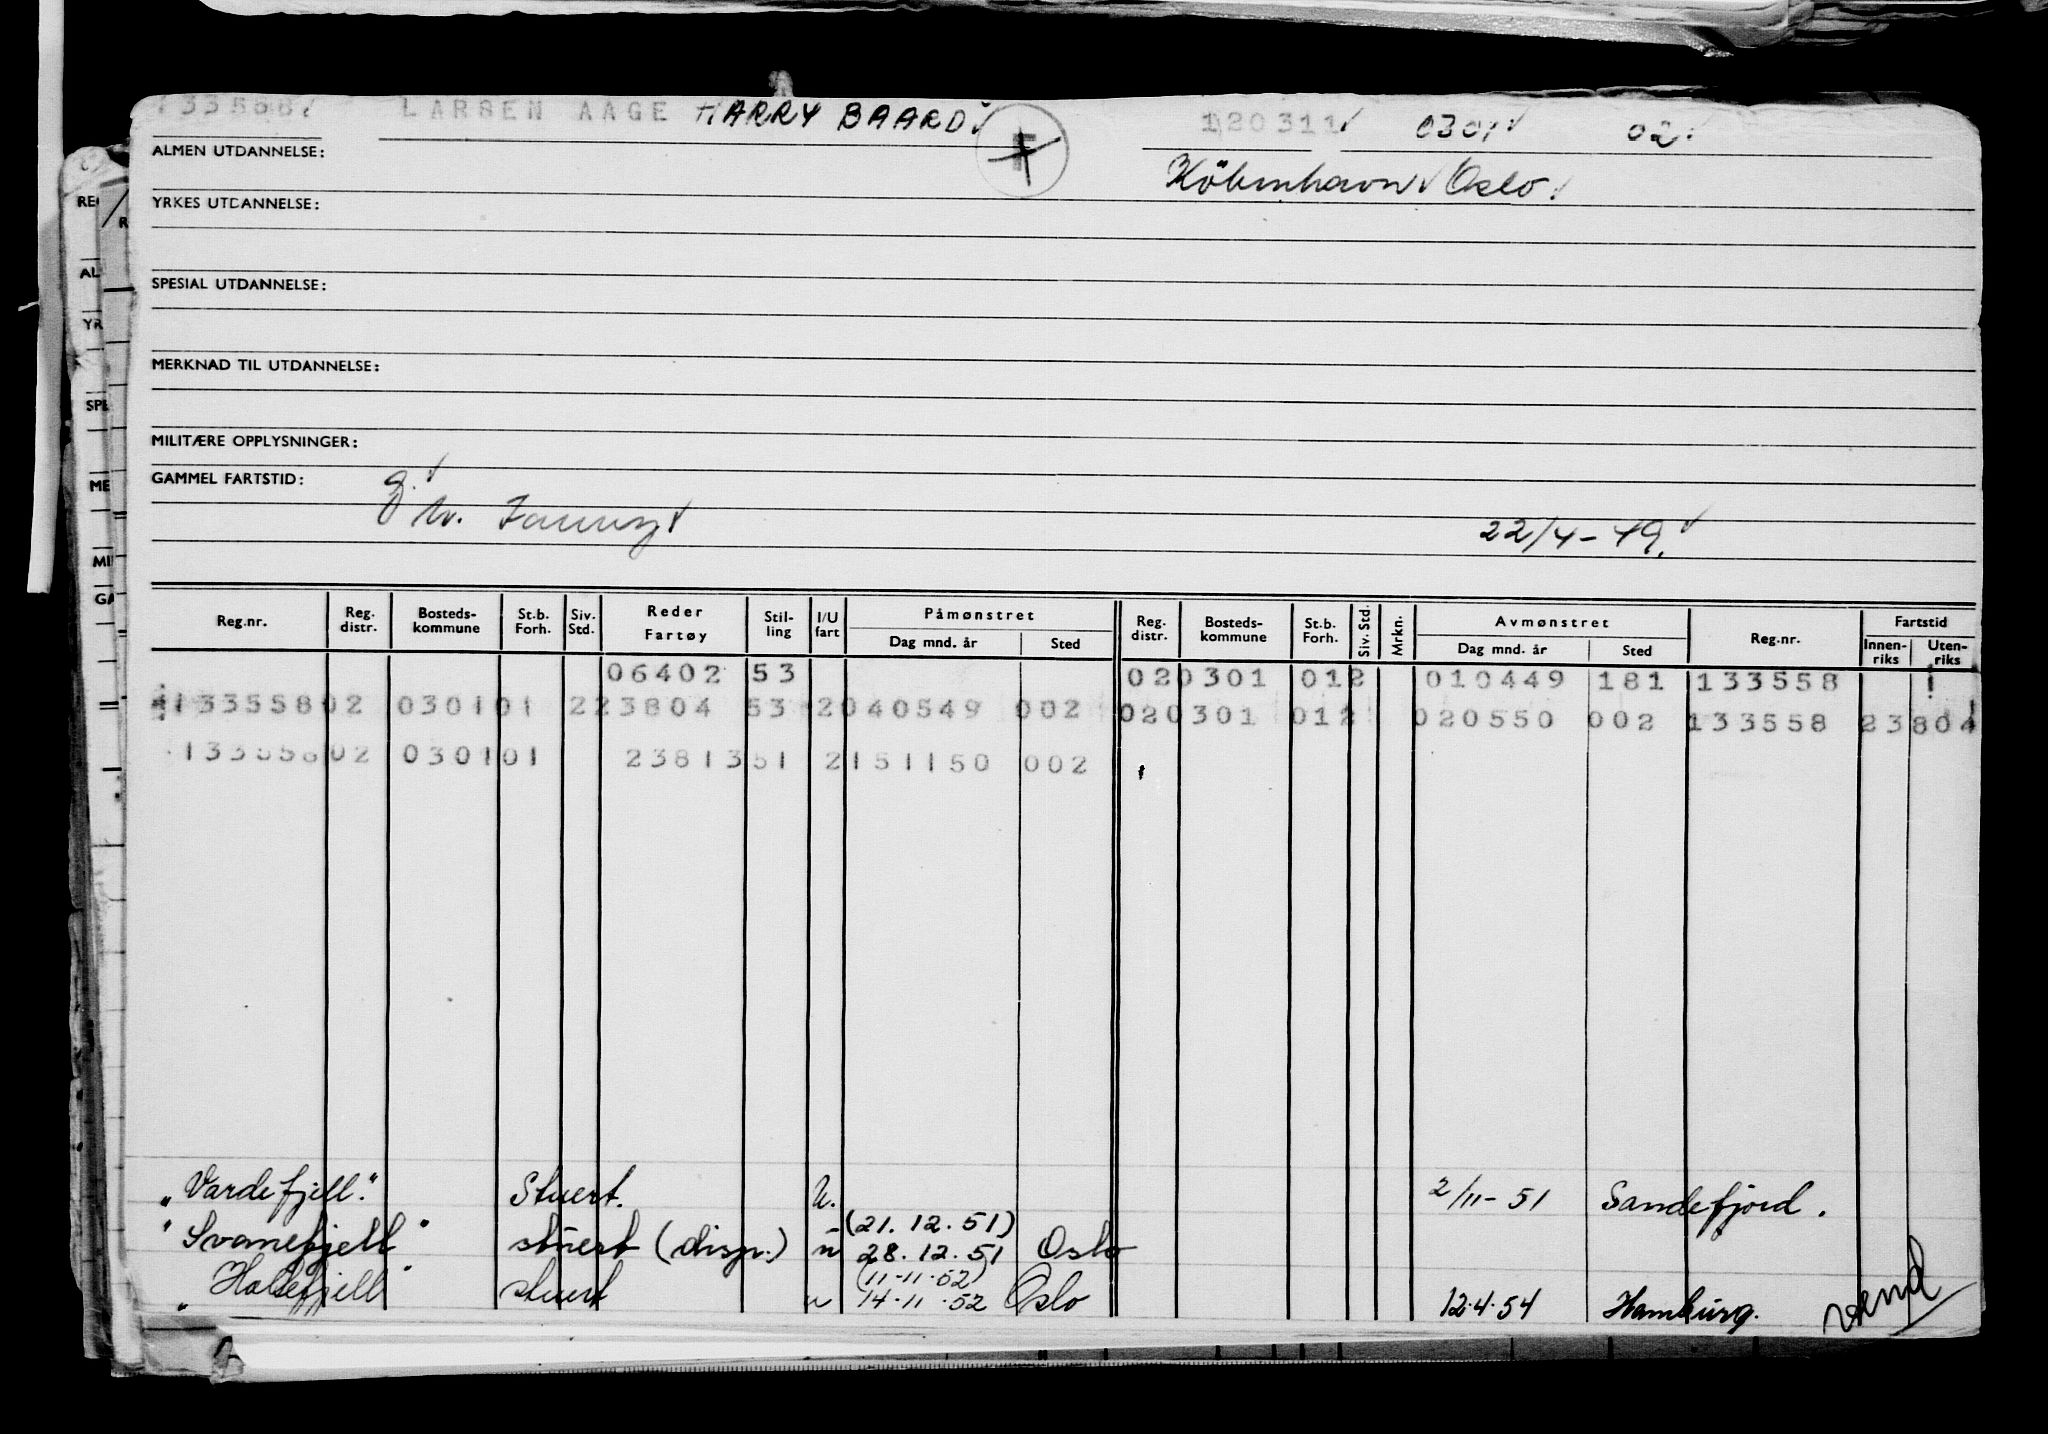 133558 LARSEN AAGE HARRY BAARD F 120311 0301 02
ALMEN UTDANNELSE: Köbenhavn Oslo.
YRKES UTDANNELSE:
SPESIAL UTDANNELSE:
MERKNAD TIL UTDANNELSE:
MILITÆRE OPPLYSNINGER:
GAMMEL FARTSTID:
22/4-49.
Reg.nr. Reg. distr. Bosteds-kommune St.b. Forh. Siv. Std. Reder Fartøy Stil-ling I/U fart Påmønstret Dag mnd. år Sted Reg. distr. Bosteds-kommune St.b. Forh. Siv. Std. Mrkn. Avmønstret Dag mnd. år Sted Reg.nr. Fartstid Innen-riks Uten-riks
06402 53 020301 012 010449 181 133558
133558 02 030101 2 23804 53 2 040549 002 020301 012 020550 002 133558 23804
133558 02 030101 23813 51 2 151150 002
"Vardefjell." Stuert. U. 2/11-51 Sandefjord.
(21.12.51)
"Svanefjell" stuert (disp.) u 28.12.51 Oslo
(11-11-52)
"Halsefjell" stuert u 14-11-52 Oslo 12.4.54 Hamburg. vend